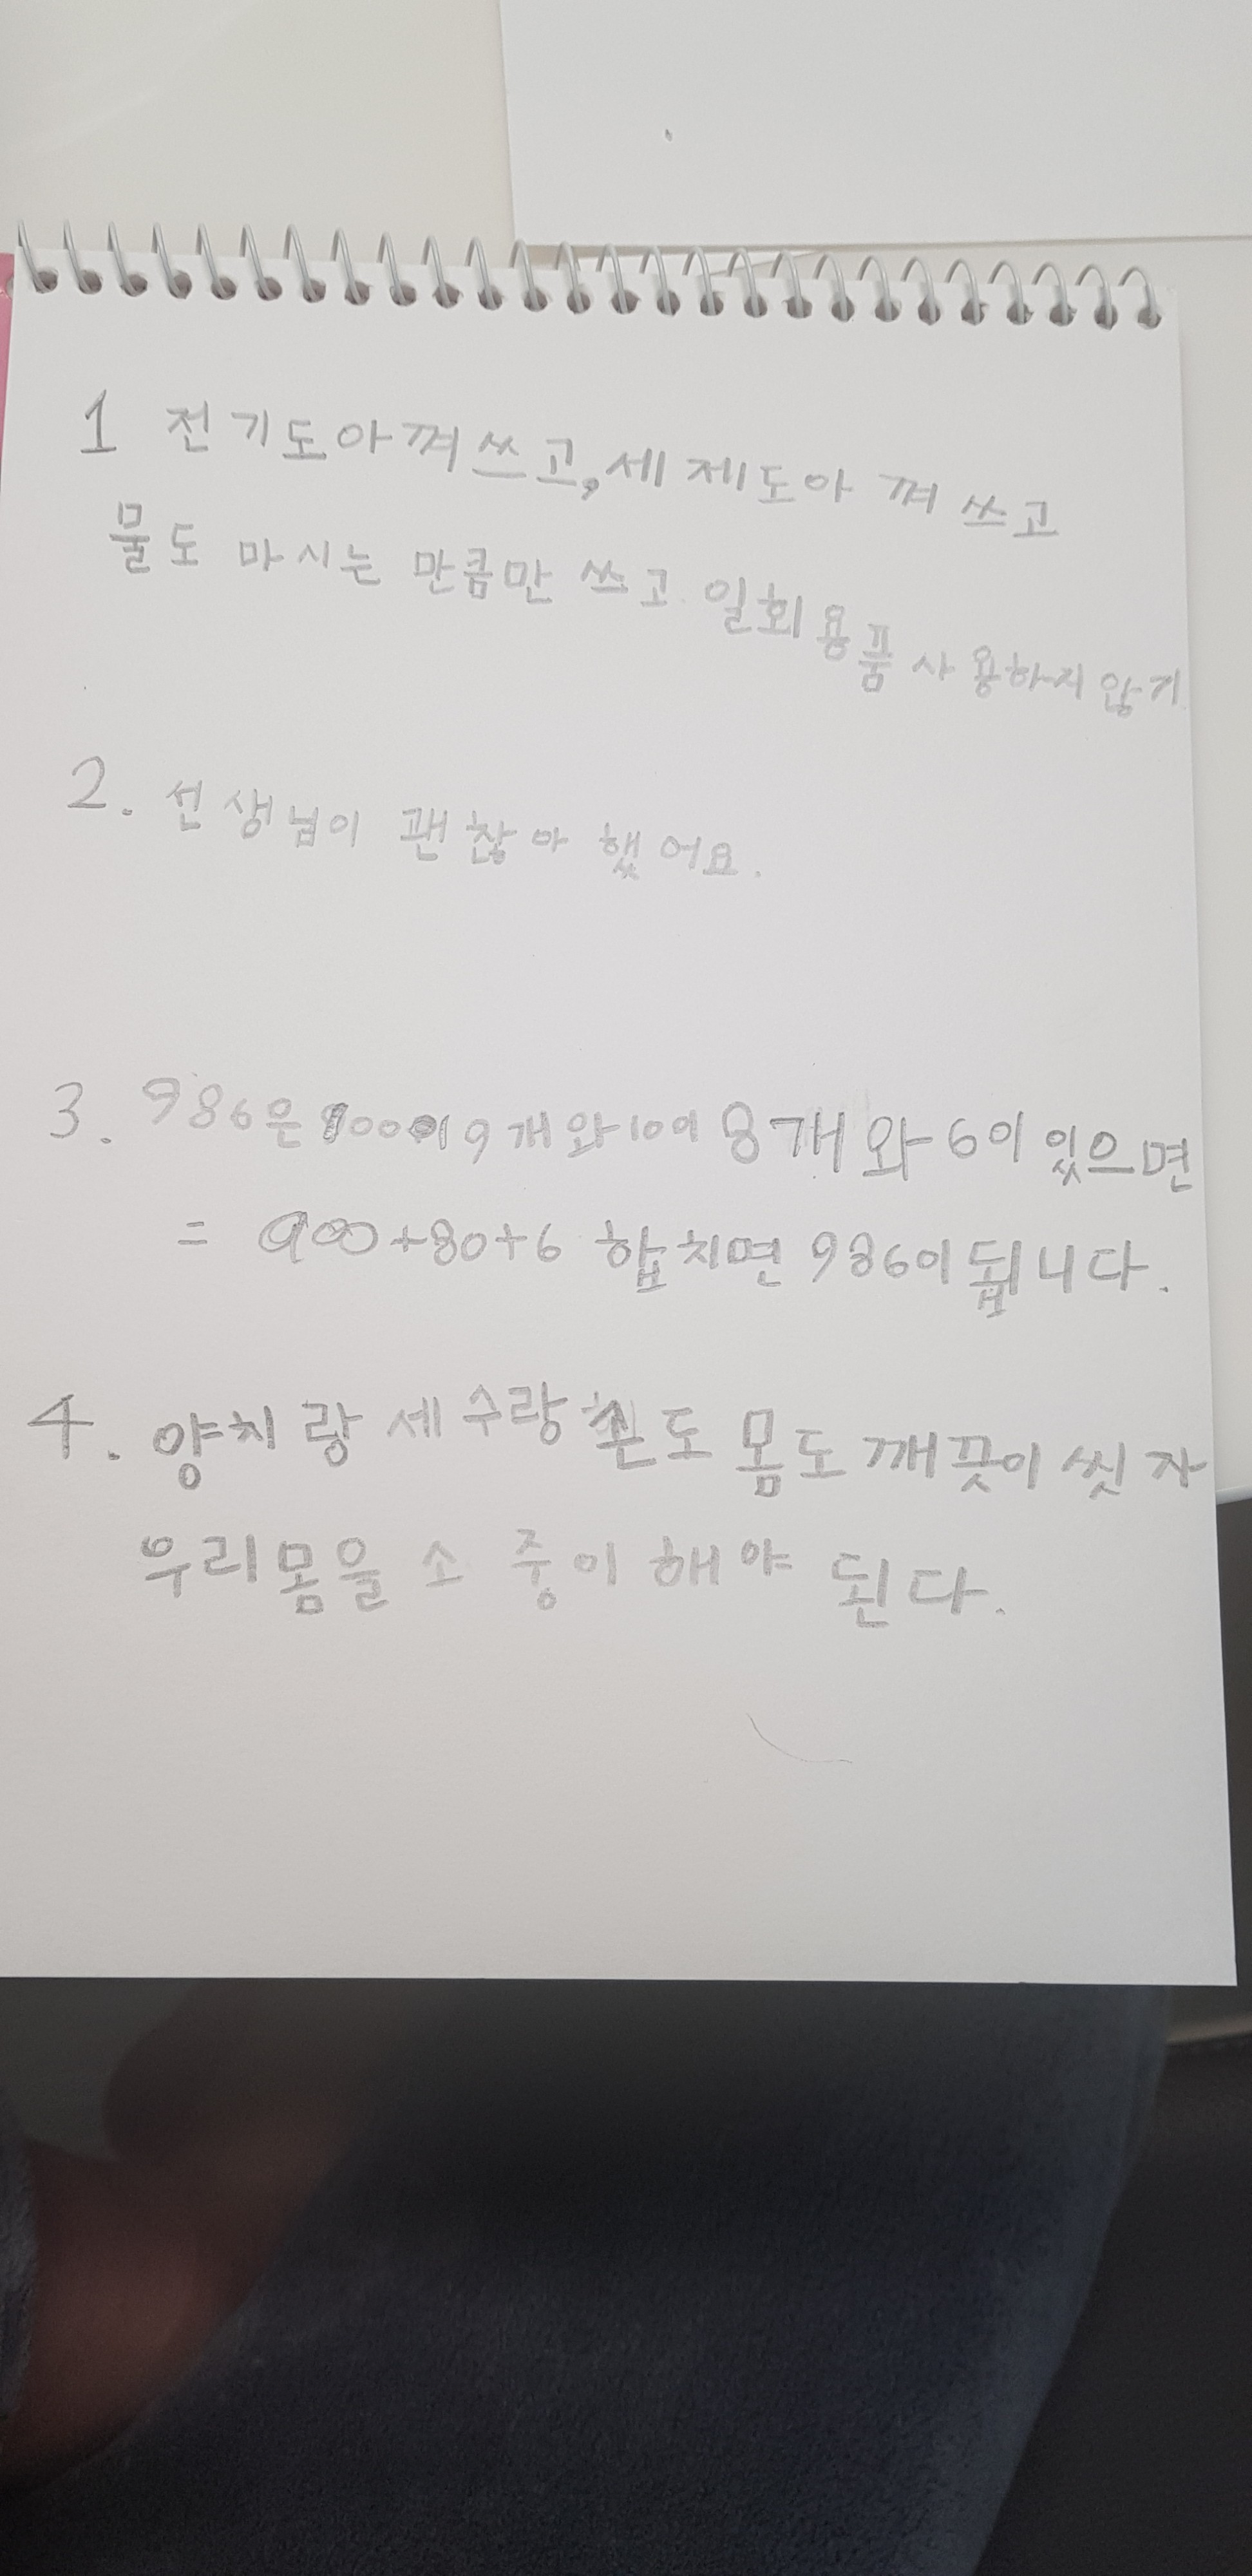 1 전기도아껴쓰고, 세제도아 껴 쓰고
물도 마시는 만큼만 쓰고 일회용품 사용하지않기
2. 선생님이 괜찮아 했어요.
3. 986은 100이 9개와 10이 8개와 6이 있으면
= 900+80+6 합치면 986이 됩니다.
4. 양치랑 세수랑 손도 몸도 깨끗이 씻자
우리몸을 소중이 해야 된다.